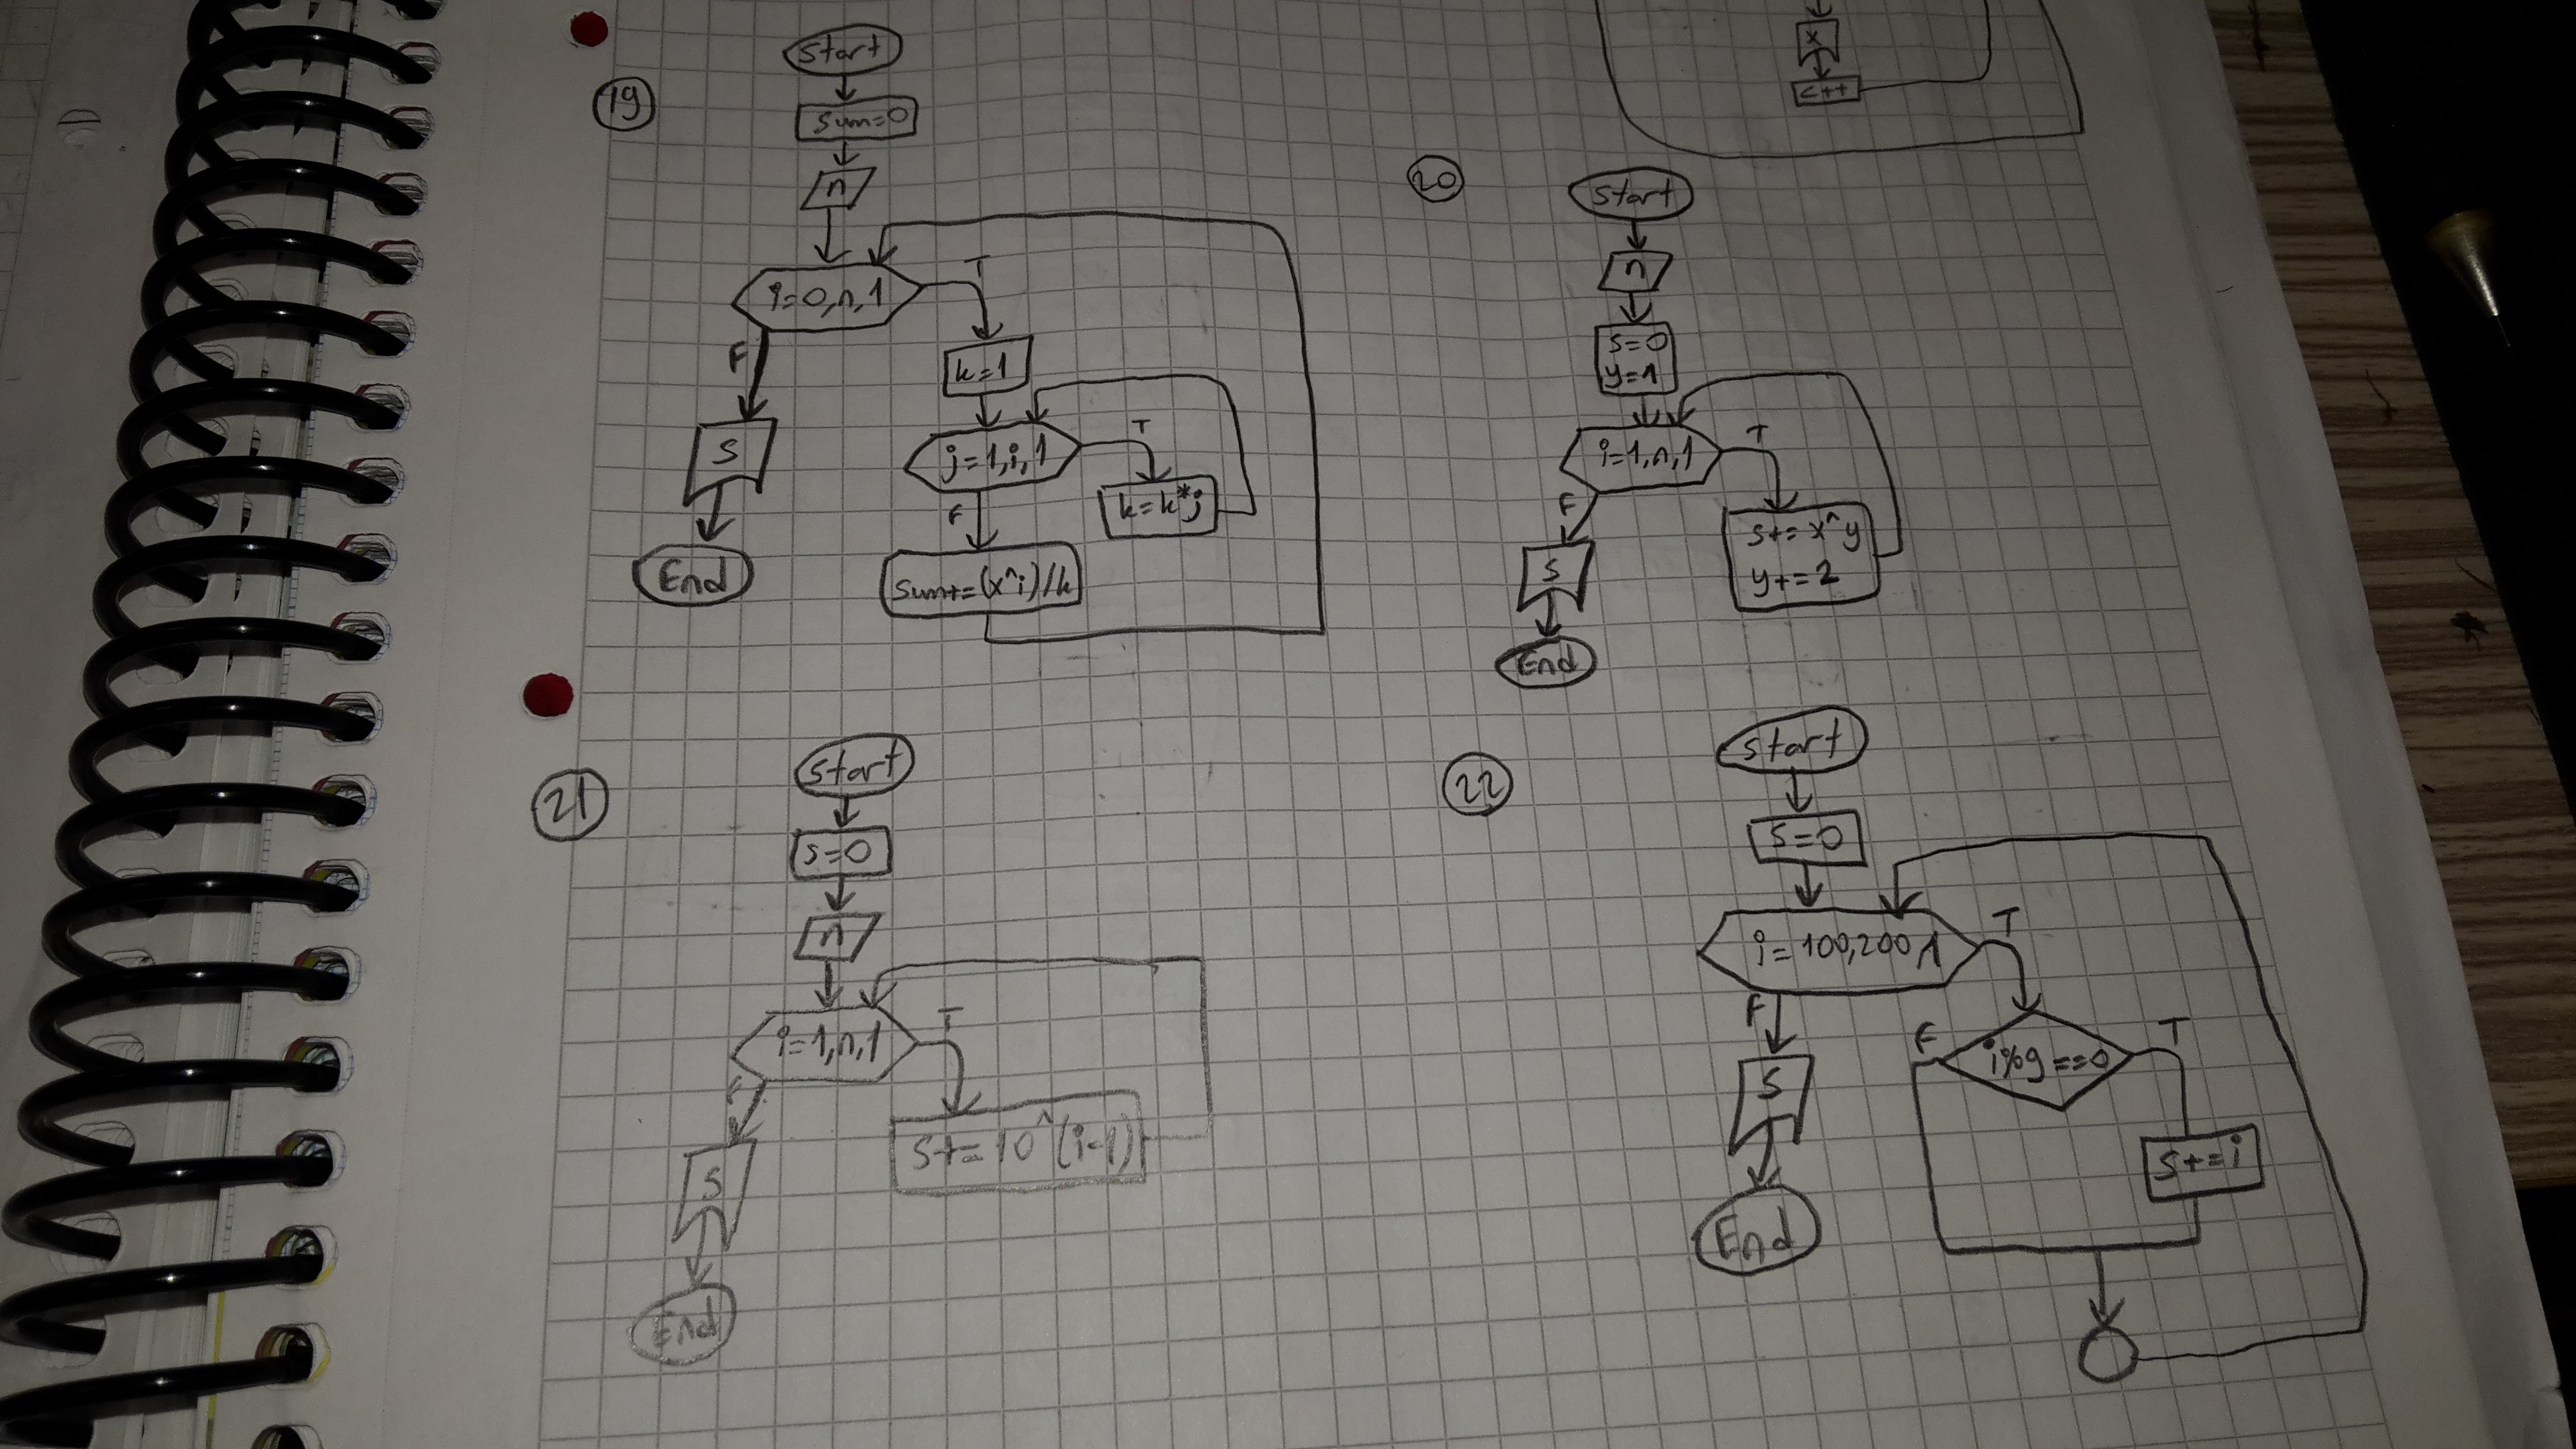 x
c++
19
Start
sum=0
n
i=0,n,1
T
F
k=1
j=1,i,1
T
k=k*j
F
sum+=(x^i)/k
S
End
20
Start
n
s=0
y=1
i=1,n,1
T
F
s+=x^y
y+=2
S
End
21
Start
s=0
n
i=1,n,1
T
F
s+=10^(i-1)
S
End
22
Start
s=0
i=100,200,1
T
F
i%9==0
F
T
s+=i
S
End